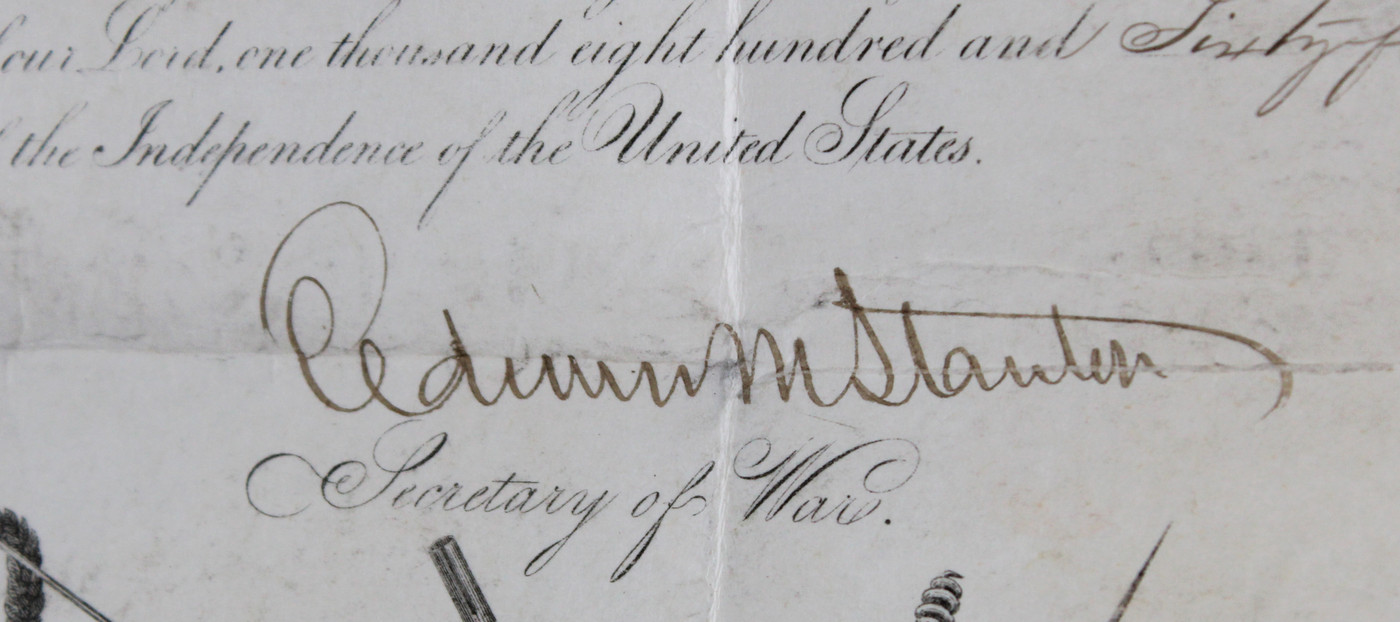 our Lord, one thousand eight hundred and Sixty-f
the Independence of the United States.
Edwin M Stanton
Secretary of War.